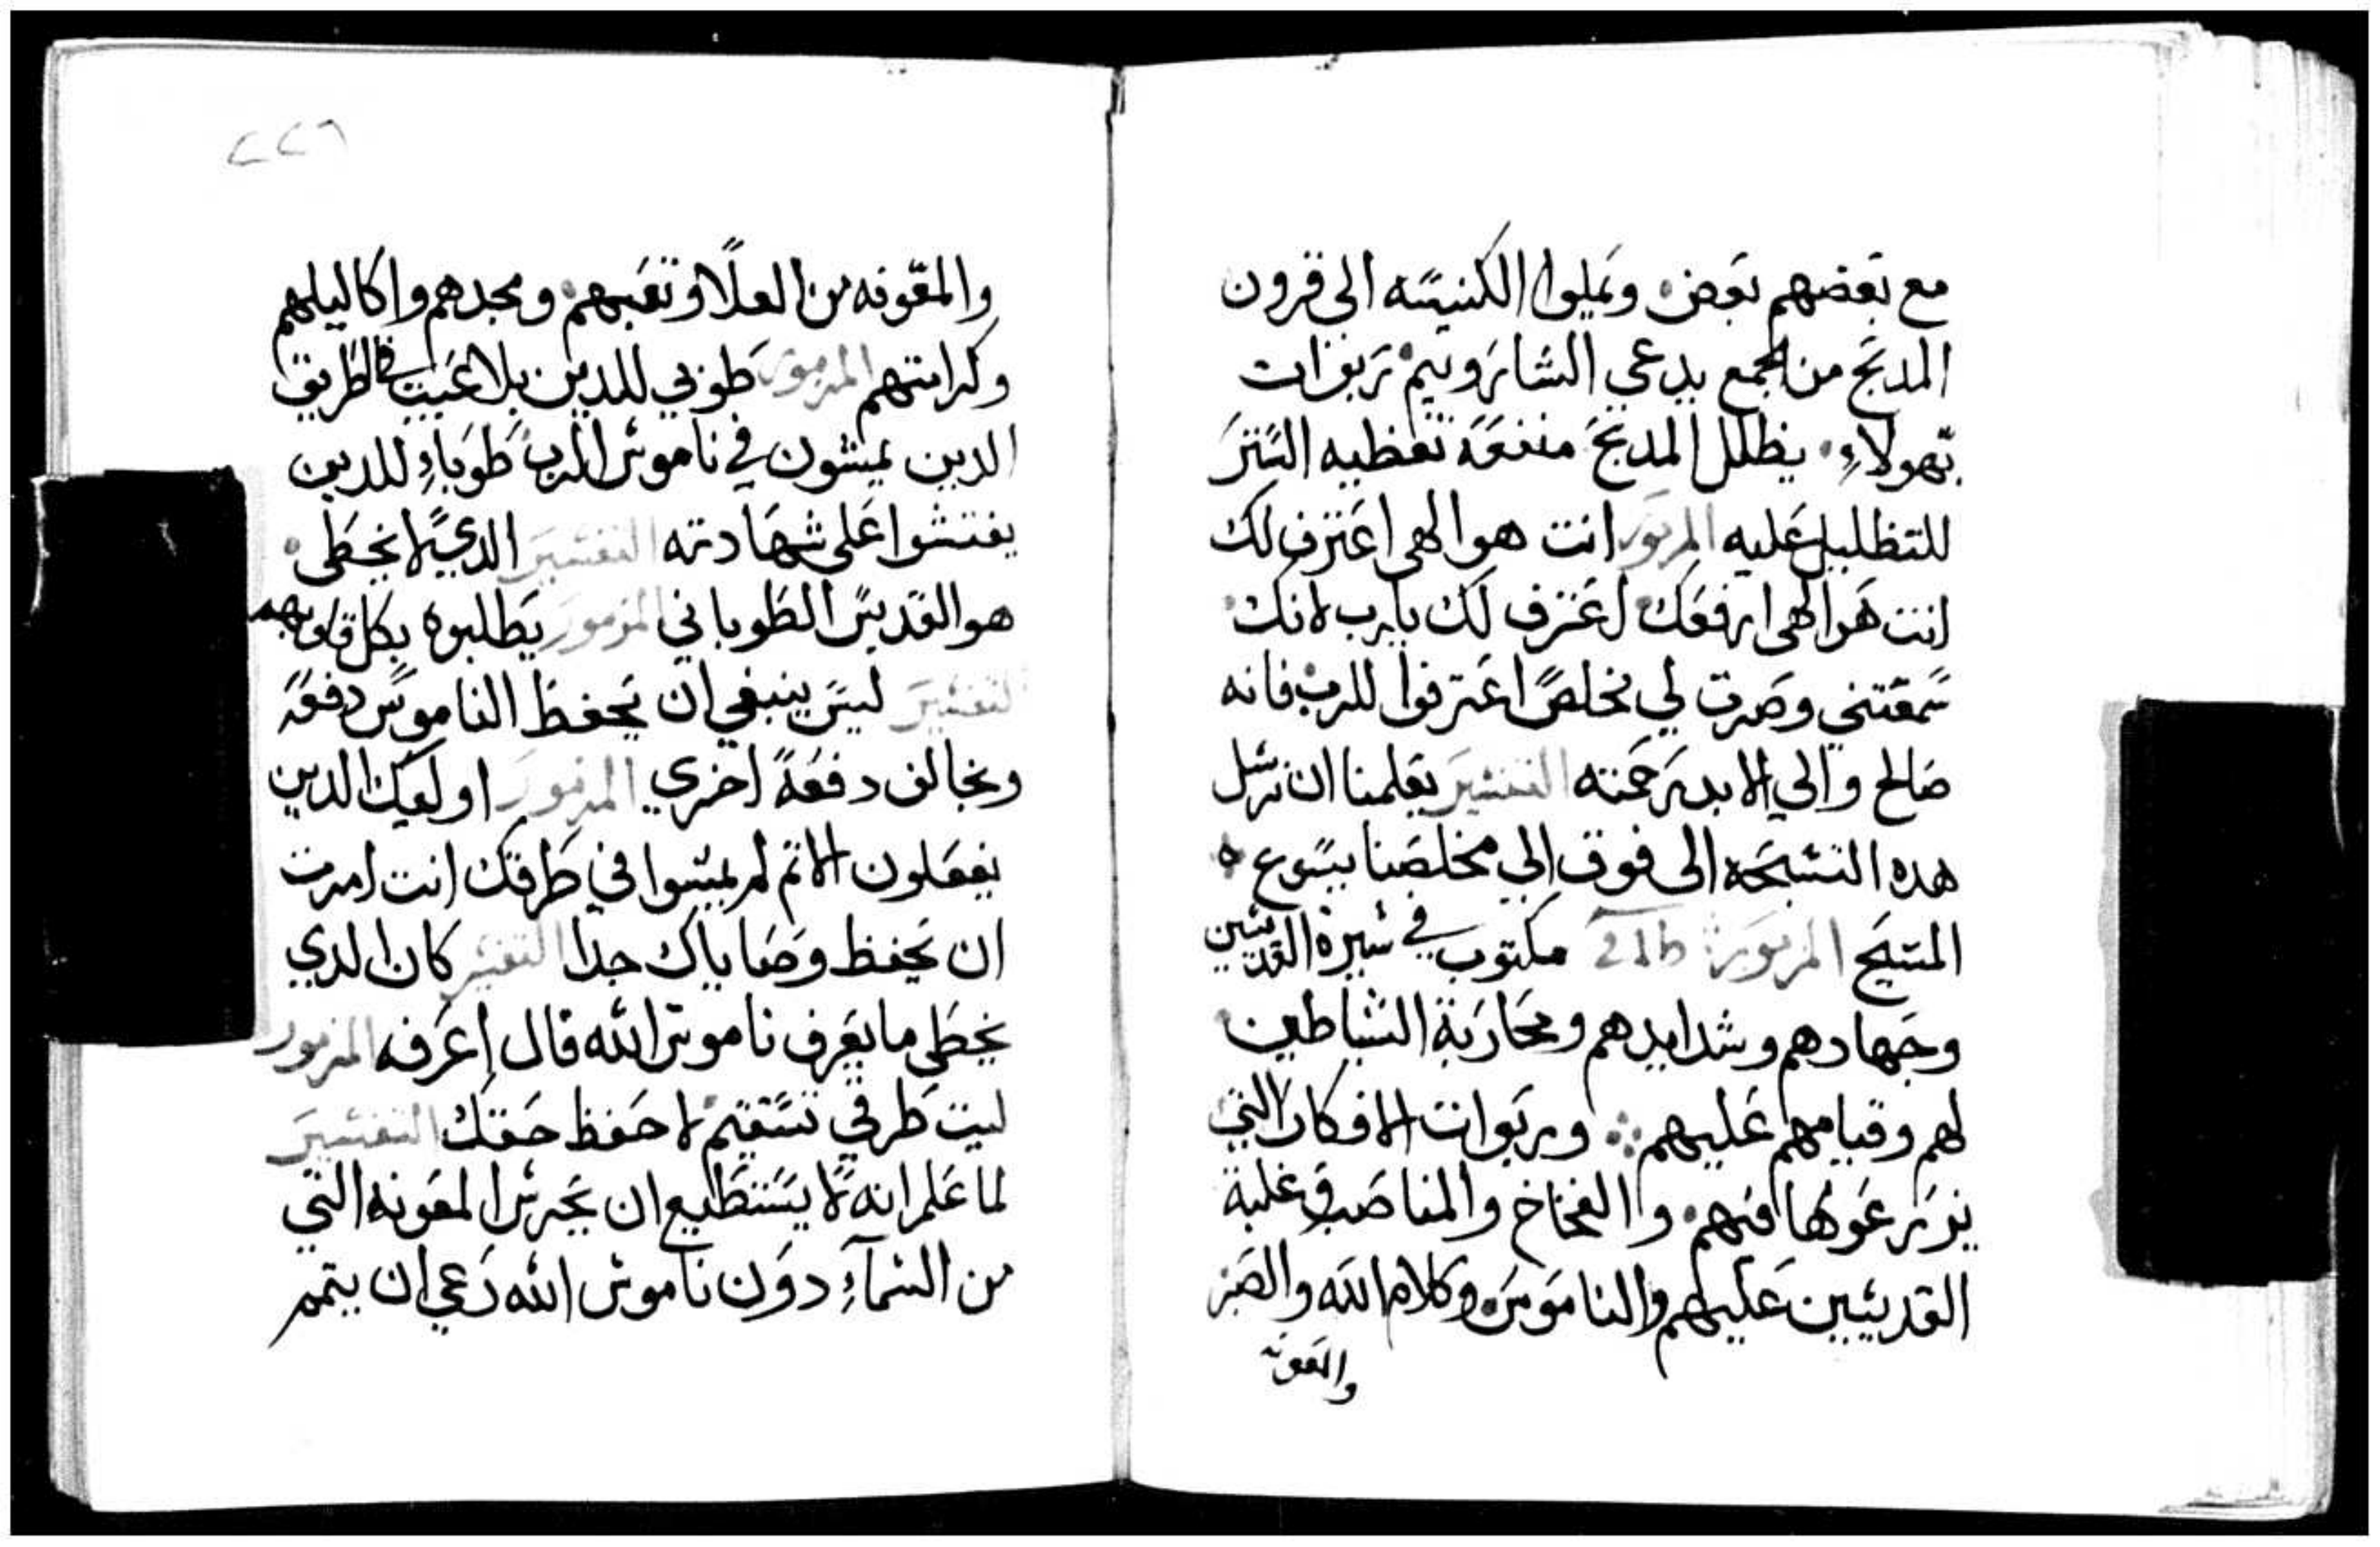 مع بعضهم بعض، ويملوا الكنيسه الى قرون
المدبح من الجمع يدعي الشاروبيم تربوات
بهولاء، يظلل المدبح منفعه تغظيه الستر
للتظليل عليه المزمور انت هو الهى اعترف لك
انت هو الهى ارفعك اعترف لك يارب لانك
سمعتني وصرت لي مخلصًا اعترفوا للرب فانه
صالح والي الابد رحمته التفسير يعلمنا ان نرسل
هده التسبحه الى فوق الي مخلصنا يسوع
المسيح المزمور مكتوب في سيرة القديسين
وجهادهم وشدايدهم ومحاربة الشياطين
لهم وقيامهم عليهم وربوات الافكار التي
يزرعوها فيهم، والفخاخ والمناصب وغلبة
القديسين عليهم والناموس وكلام الله والصبر
والمعونه
٢٢٦
والمعونه من العلا وتعبهم، ومجدهم واكاليلهم
وكرامتهم المزمور طوبي للدين بلا عيب في الطريق
الدين يمشون في ناموس الرب طوباء للدين
يفتشوا على شهادته التفسير الدي لا يخطى
هو القديس الطوباني المزمور يطلبوه بكل قلوبهم
التفسير ليس ينبغي ان يحفظ الناموس دفعه
ويخالف دفعة اخري المزمور اوليك الدين
يفعلون الاتم لم يمشوا في طرقك انت امرت
ان تحفظ وصاياك جدا التفسير كان الدي
يخطى ما يعرف ناموس الله قال اعرفه المزمور
ليت طرقي تستقيم لاحفظ حقك التفسير
لما علم انه لا يستطيع ان يحرس المعونه التي
من السماء دون ناموس الله دعي ان يتمم